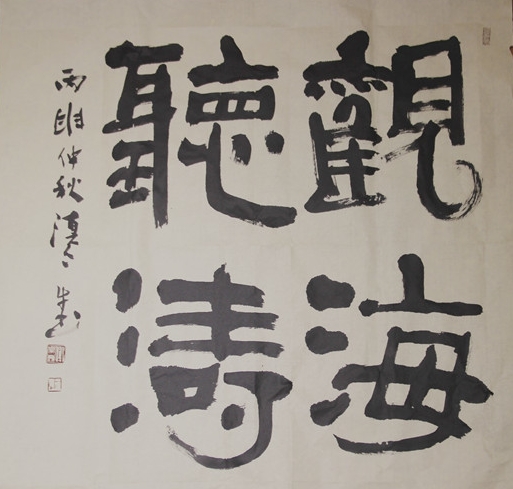 觀海
聽濤
丙申仲秋